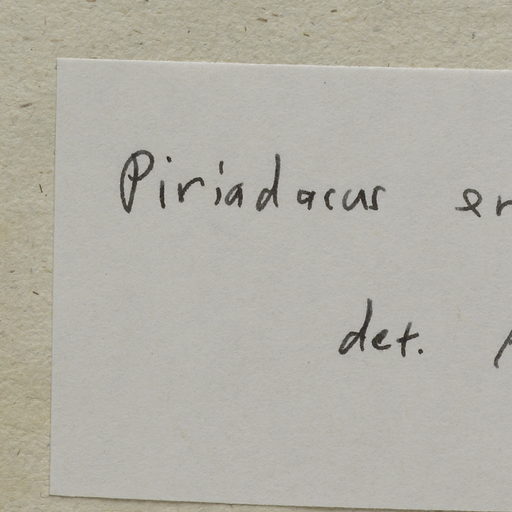 Piriadacus er
det.